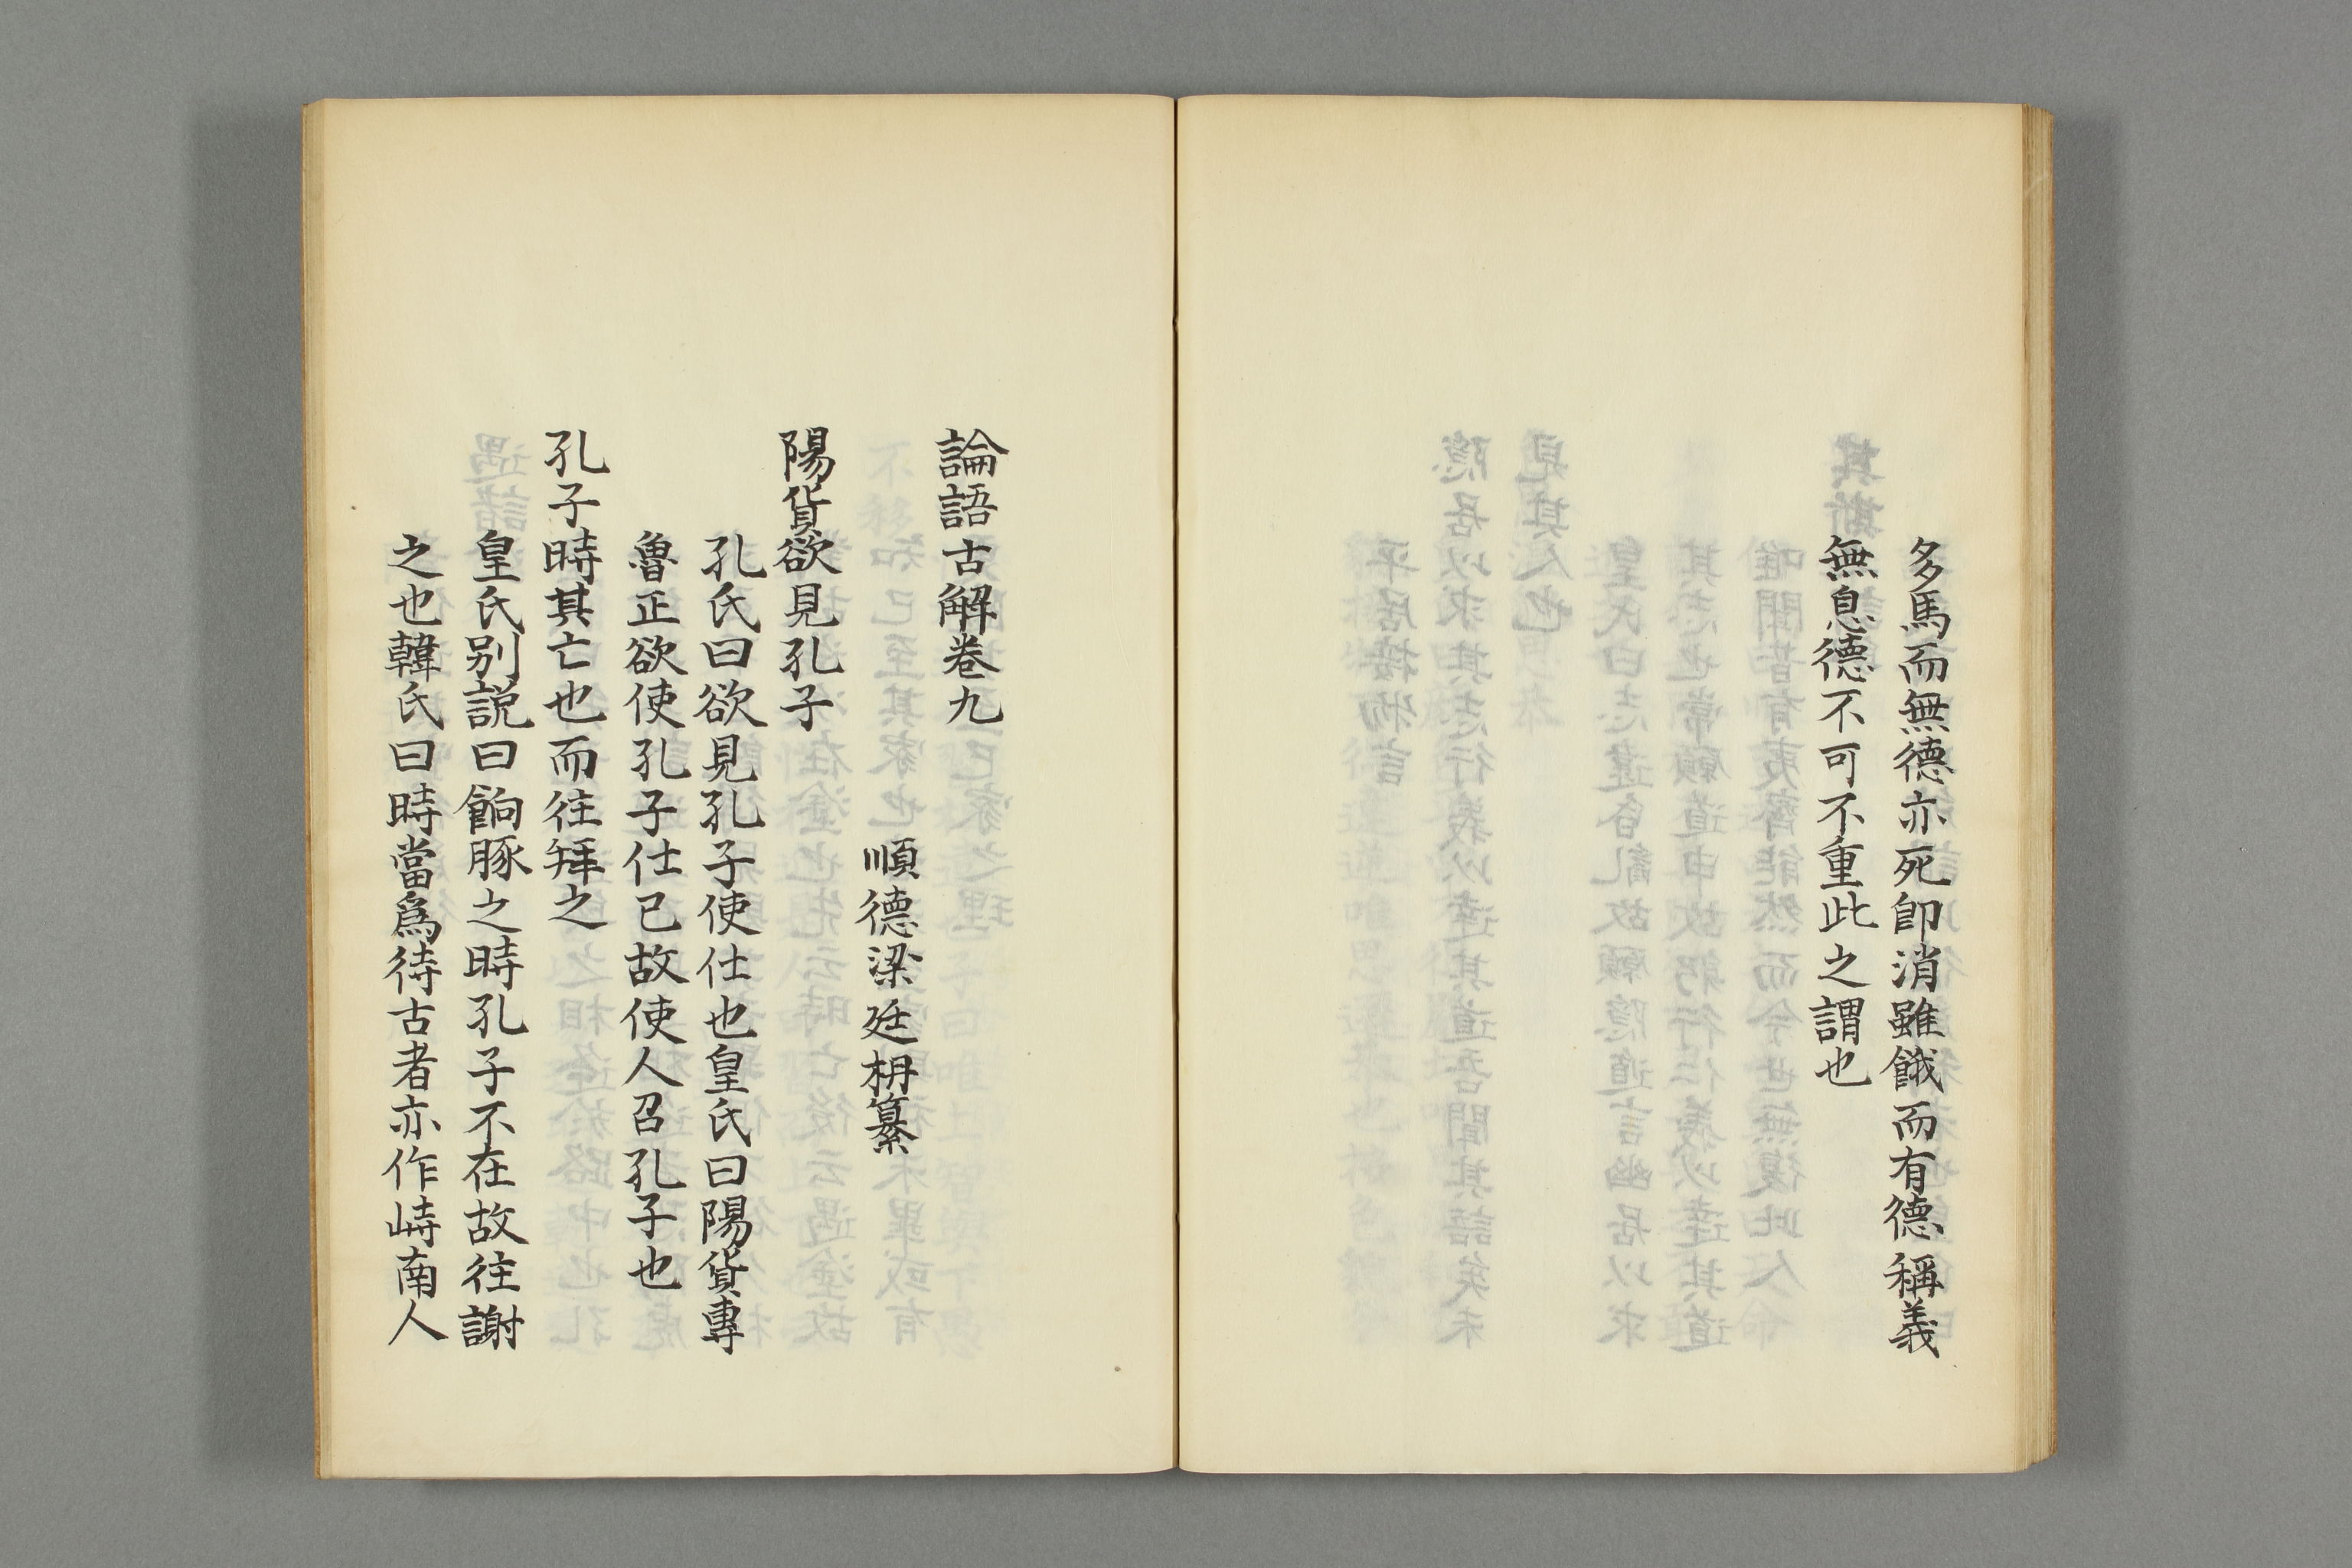 多馬而無德亦死卽消雖餓而有德稱義
無息德不可不重此之謂也
論語古解卷九
順德梁廷枏纂
陽貨欲見孔子
孔氏曰欲見孔子使仕也皇氏曰陽貨專
魯正欲使孔子仕己故使人召孔子也
孔子時其亡也而往拜之
皇氏别説曰餉豚之時孔子不在故往謝
之也韓氏曰時當爲待古者亦作峙南人